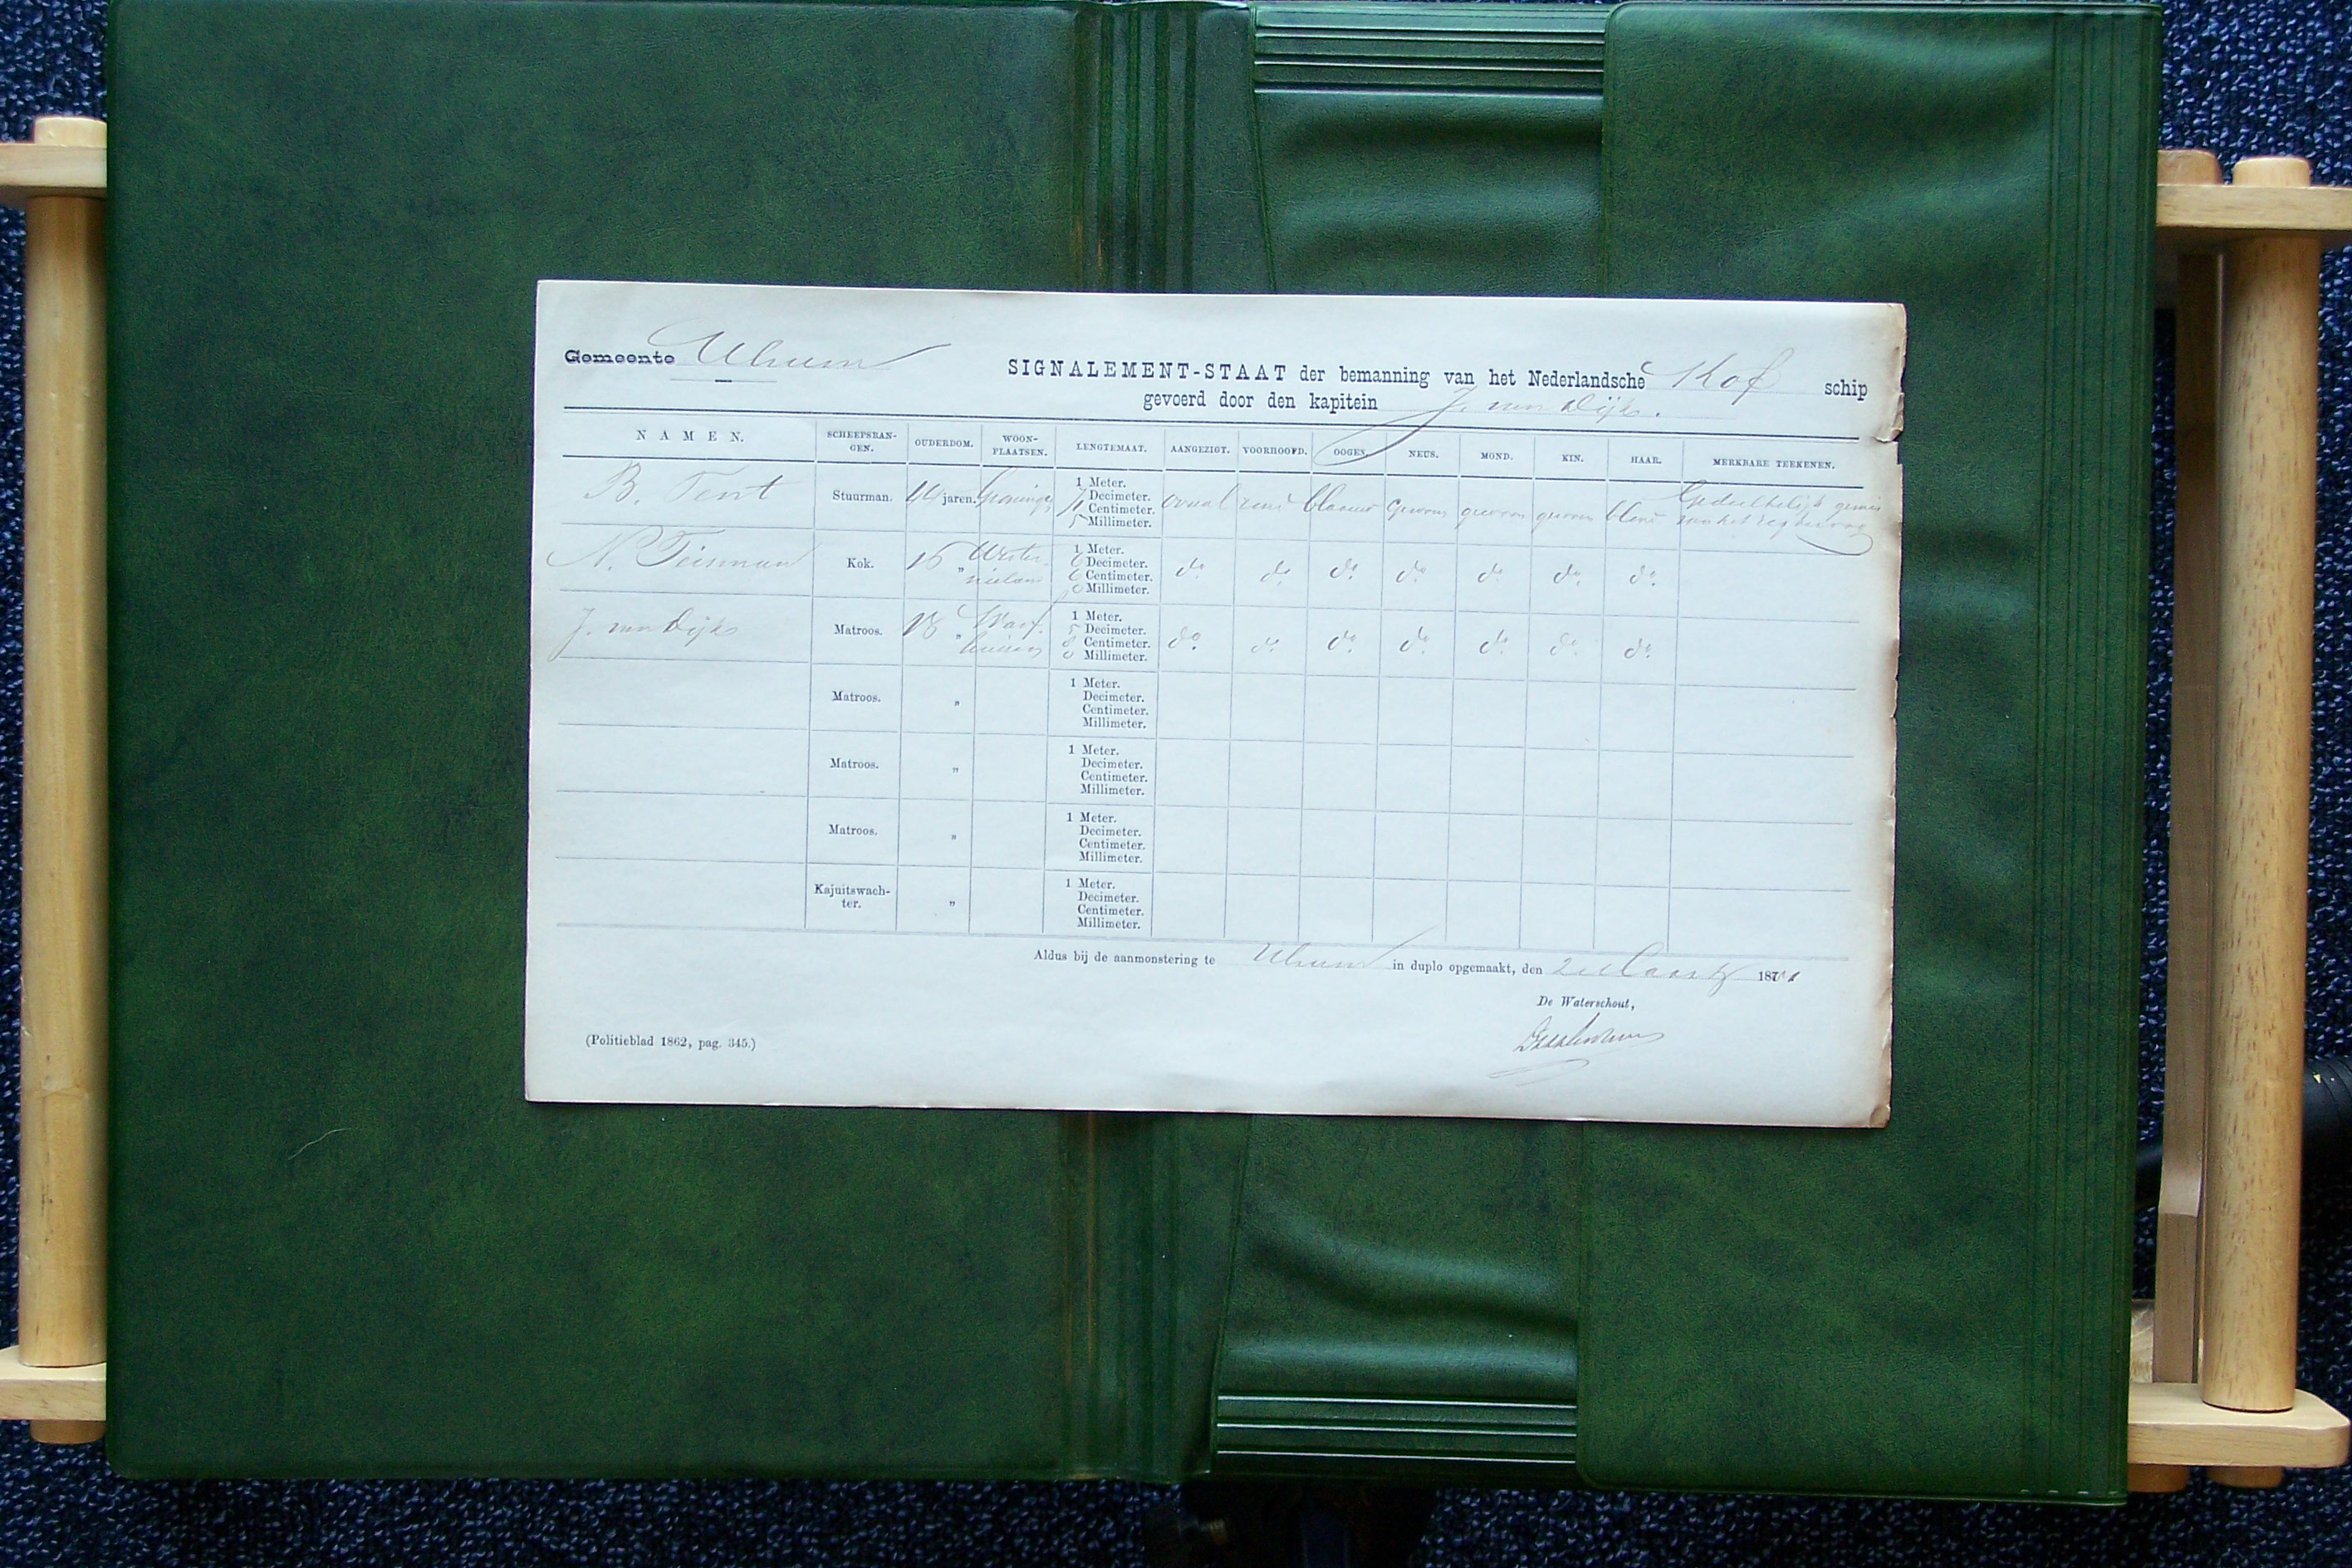 Gemeente Ulrum
SIGNALEMENT-STAAT der bemanning van het Nederlandsche Kof schip
gevoerd door den kapitein J. van Dijk.
NAMEN. SCHEEPSRANGEN. OUDERDOM. WOONPLAATSEN. LENGTEMAAT. AANGEZIGT. VOORHOOFD. OOGEN. NEUS. MOND. KIN. HAAR. MERKBARE TEEKENEN.
B. Tent Stuurman. 44 jaren. Groningen 1 Meter. 7 Decimeter. 1 Centimeter. 5 Millimeter. ovaal rond blaauw gewoon gewoon gewoon blond Gedeeltelijk gemis van het regteroog
N. Teisman Kok. 16 „ Wester-nieland 1 Meter. 6 Decimeter. 6 Centimeter. 0 Millimeter. do. do. do. do. do. do. do.
J. van Dijk Matroos. 18 „ Warfhuizen 1 Meter. 5 Decimeter. 8 Centimeter. 0 Millimeter. do. do. do. do. do. do. do.
Matroos. „ 1 Meter. Decimeter. Centimeter. Millimeter.
Matroos. „ 1 Meter. Decimeter. Centimeter. Millimeter.
Matroos. „ 1 Meter. Decimeter. Centimeter. Millimeter.
Kajuitswachter. „ 1 Meter. Decimeter. Centimeter. Millimeter.
Aldus bij de aanmonstering te Ulrum in duplo opgemaakt, den 2 Maart 187
De Waterschout,
(Politieblad 1862, pag. 345.)